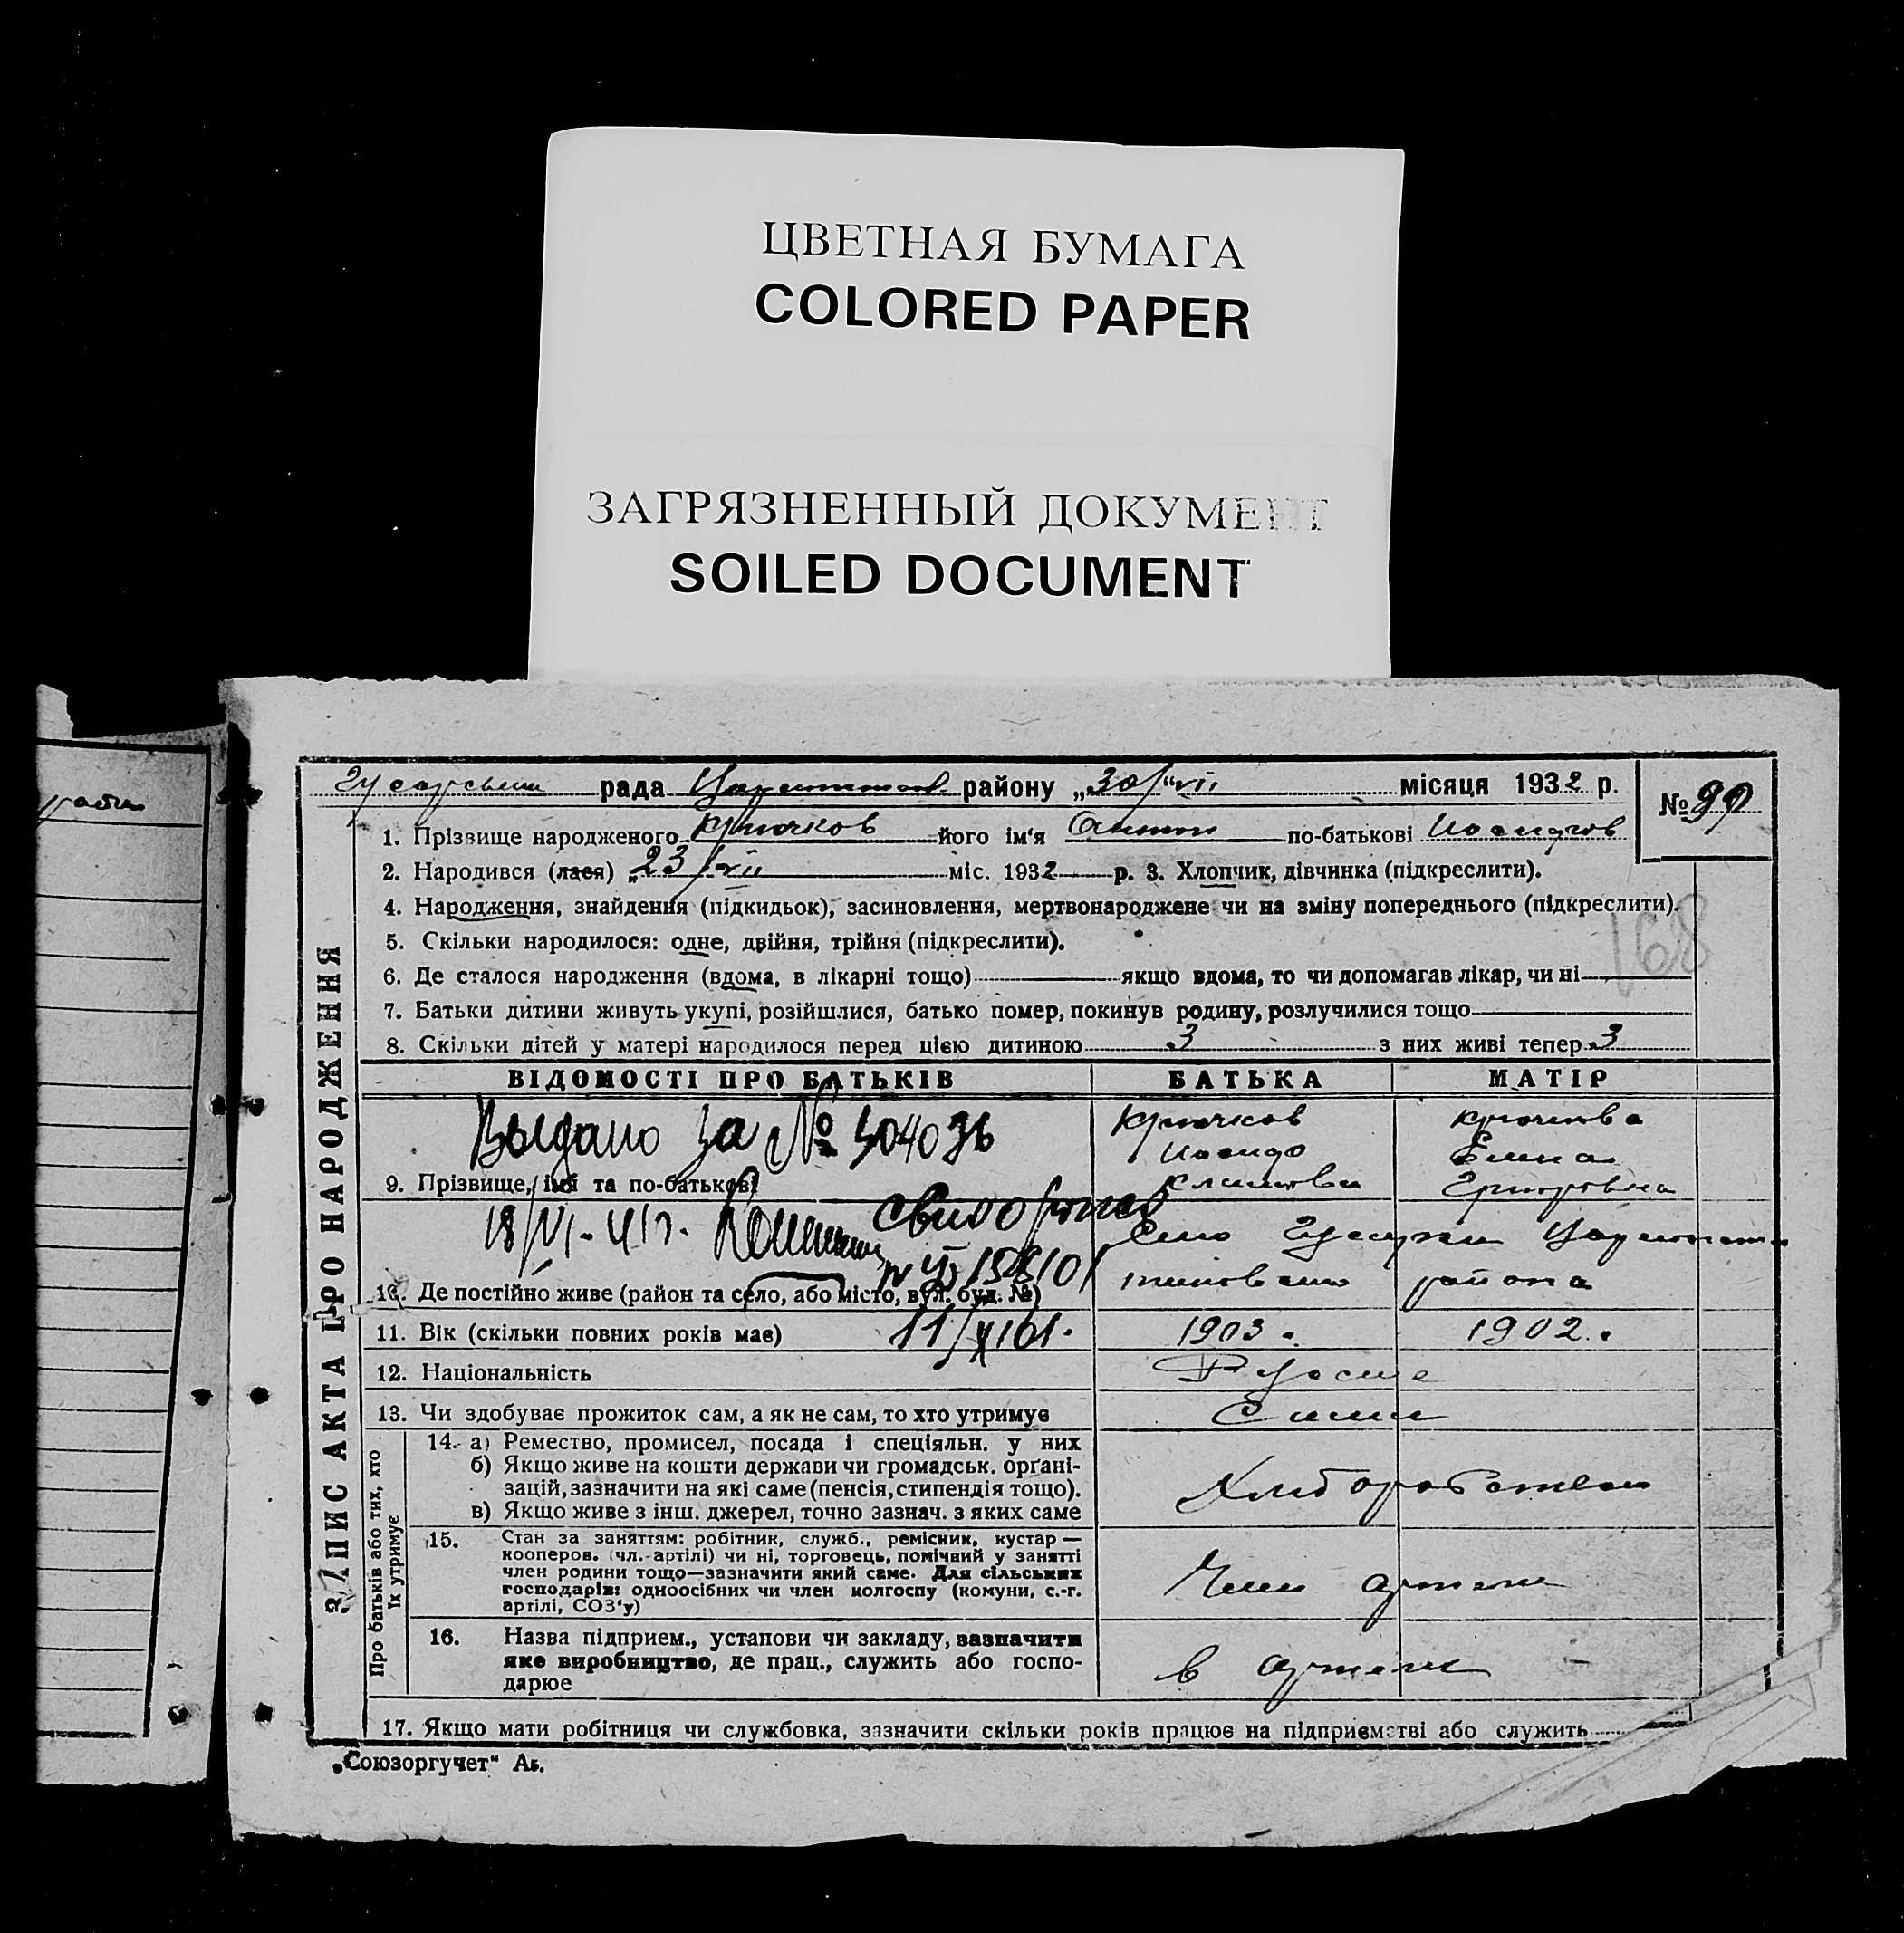 ЦВЕТНАЯ БУМАГА
COLORED PAPER
ЗАГРЯЗНЕННЫЙ ДОКУМЕНТ
SOILED DOCUMENT
рада району „30/VII“ місяця 1932 р. № 99
1. Прізвище народженого Крючков його ім‘я Антон по-батькові
2. Народився (лася) „23/VII міс. 1932 р. 3. Хлопчик, дівчинка (підкреслити).
4. Народження, знайдення (підкидьок), засиновлення, мертвонароджене чи на зміну попереднього (підкреслити).
168
5. Скільки народилося: одне, двійня, трійня (підкреслити).
6. Де сталося народження (вдома, в лікарні тощо) якщо вдома, то чи допомагав лікар, чи ні
7. Батьки дитини живуть укупі, розійшлися, батько помер, покинув родину, розлучилися тощо
8. Скільки дітей у матері народилося перед цією дитиною 3 з них живі тепер 3
ЗАПИС АКТА ПРО НАРОДЖЕННЯ
ВІДОМОСТІ ПРО БАТЬКІВ БАТЬКА МАТІР
Выдано за № Крючков Крючкова
Елена
9. Прізвище, імя та по-батькові Григоровна
Село
10. Де постійно живе (район та село, або місто, вул. буд. №) района
11. Вік (скільки повних років має) 1903. 1902.
11/XI 61.
12. Національність
13. Чи здобуває прожиток сам, а як не сам, то хто утримує Сами
Про батьків або тих, хто їх утримує
14. а) Ремество, промисел, посада і спеціяльн. у них
б) Якщо живе на кошти держави чи громадськ. органі-
зацій, зазначити на які саме (пенсія, стипендія тощо).
в) Якщо живе з інш. джерел, точно зазнач. з яких саме
15. Стан за заняттям: робітник, служб., ремісник, кустар —
кооперов. (чл. артілі) чи ні, торговець, помічний у занятті
член родини тощо—зазначити який саме. Для сільських
господарів: одноосібних чи член колгоспу (комуни, с.-г.
артілі, СОЗ‘у)
Член артели
16. Назва підприєм., установи чи закладу, зазначити
яке виробництво, де прац., служить або госпо-
дарює
в артели
17. Якщо мати робітниця чи службовка, зазначити скільки років працює на підприємстві або служить
„Союзоргучет“